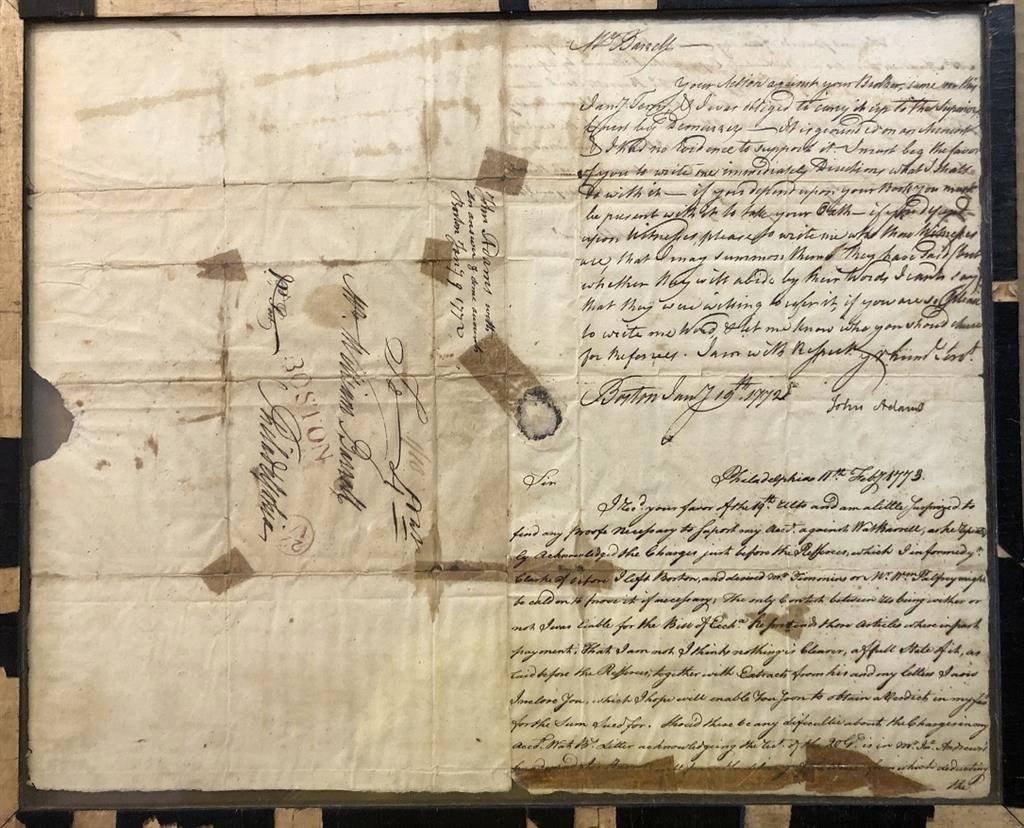 Mr Barrell —
Your Action against your Brother, came on this
Jany. Term, & I was obliged to carry it up to the Superior
Court by Demurrer — It is grounded on an Account
& I had no Evidence to support it. I must beg the favor
of you to write me immediately Directions what I shall
do with it — if you depend upon your Book you must
be present with it to take your Oath — if you depend
upon Witnesses, please to write me who those Witnesses
are that I may summon them. They have said, but
whether they will abide by their Words I cant say
that they were willing to refer it, if you are so please
to write me Word, & let me know who you should choose
for Referees. I am with Respect yr humb. Servt.
Boston Jany 19th. 1772
John Adams
Philadelphia 11th. Feby. 1773.
Sir
I Recd. your favor of the 19th. Ulto and am a little Surprized to
find any proofs necessary to Suport my Acct. against Wat Barrell, as he
ly Acknowledged the Charges just before the Refferees, which I informed yr.
Clarke of before I left Boston, and desired Mr. Timmins or Mr. Wm. Palfrey might
be call'd on to prove it if necessary; the only Contest between Us being wether or
not I was liable for the Bill of Exch. he pretends those Articles where in part
payment; That I am not I think nothing is Clearer, a full State of it, as
laid before the Referees, together with Extracts from his and my letters I now
Inclose You, which I hope will enable You Soon to obtain a Verdict in my favr.
for the Sum Sued for. Should there be any difficultie about the Charges in my
Acct. Wat Bs. Letter acknowledging the is in Mr. Jno. Andrews's
from which deducting
the
John Adams with
an answer & some accounts
Boston Jany 9 1772
Mr. William Barrell
Philadelphia
BOSTON